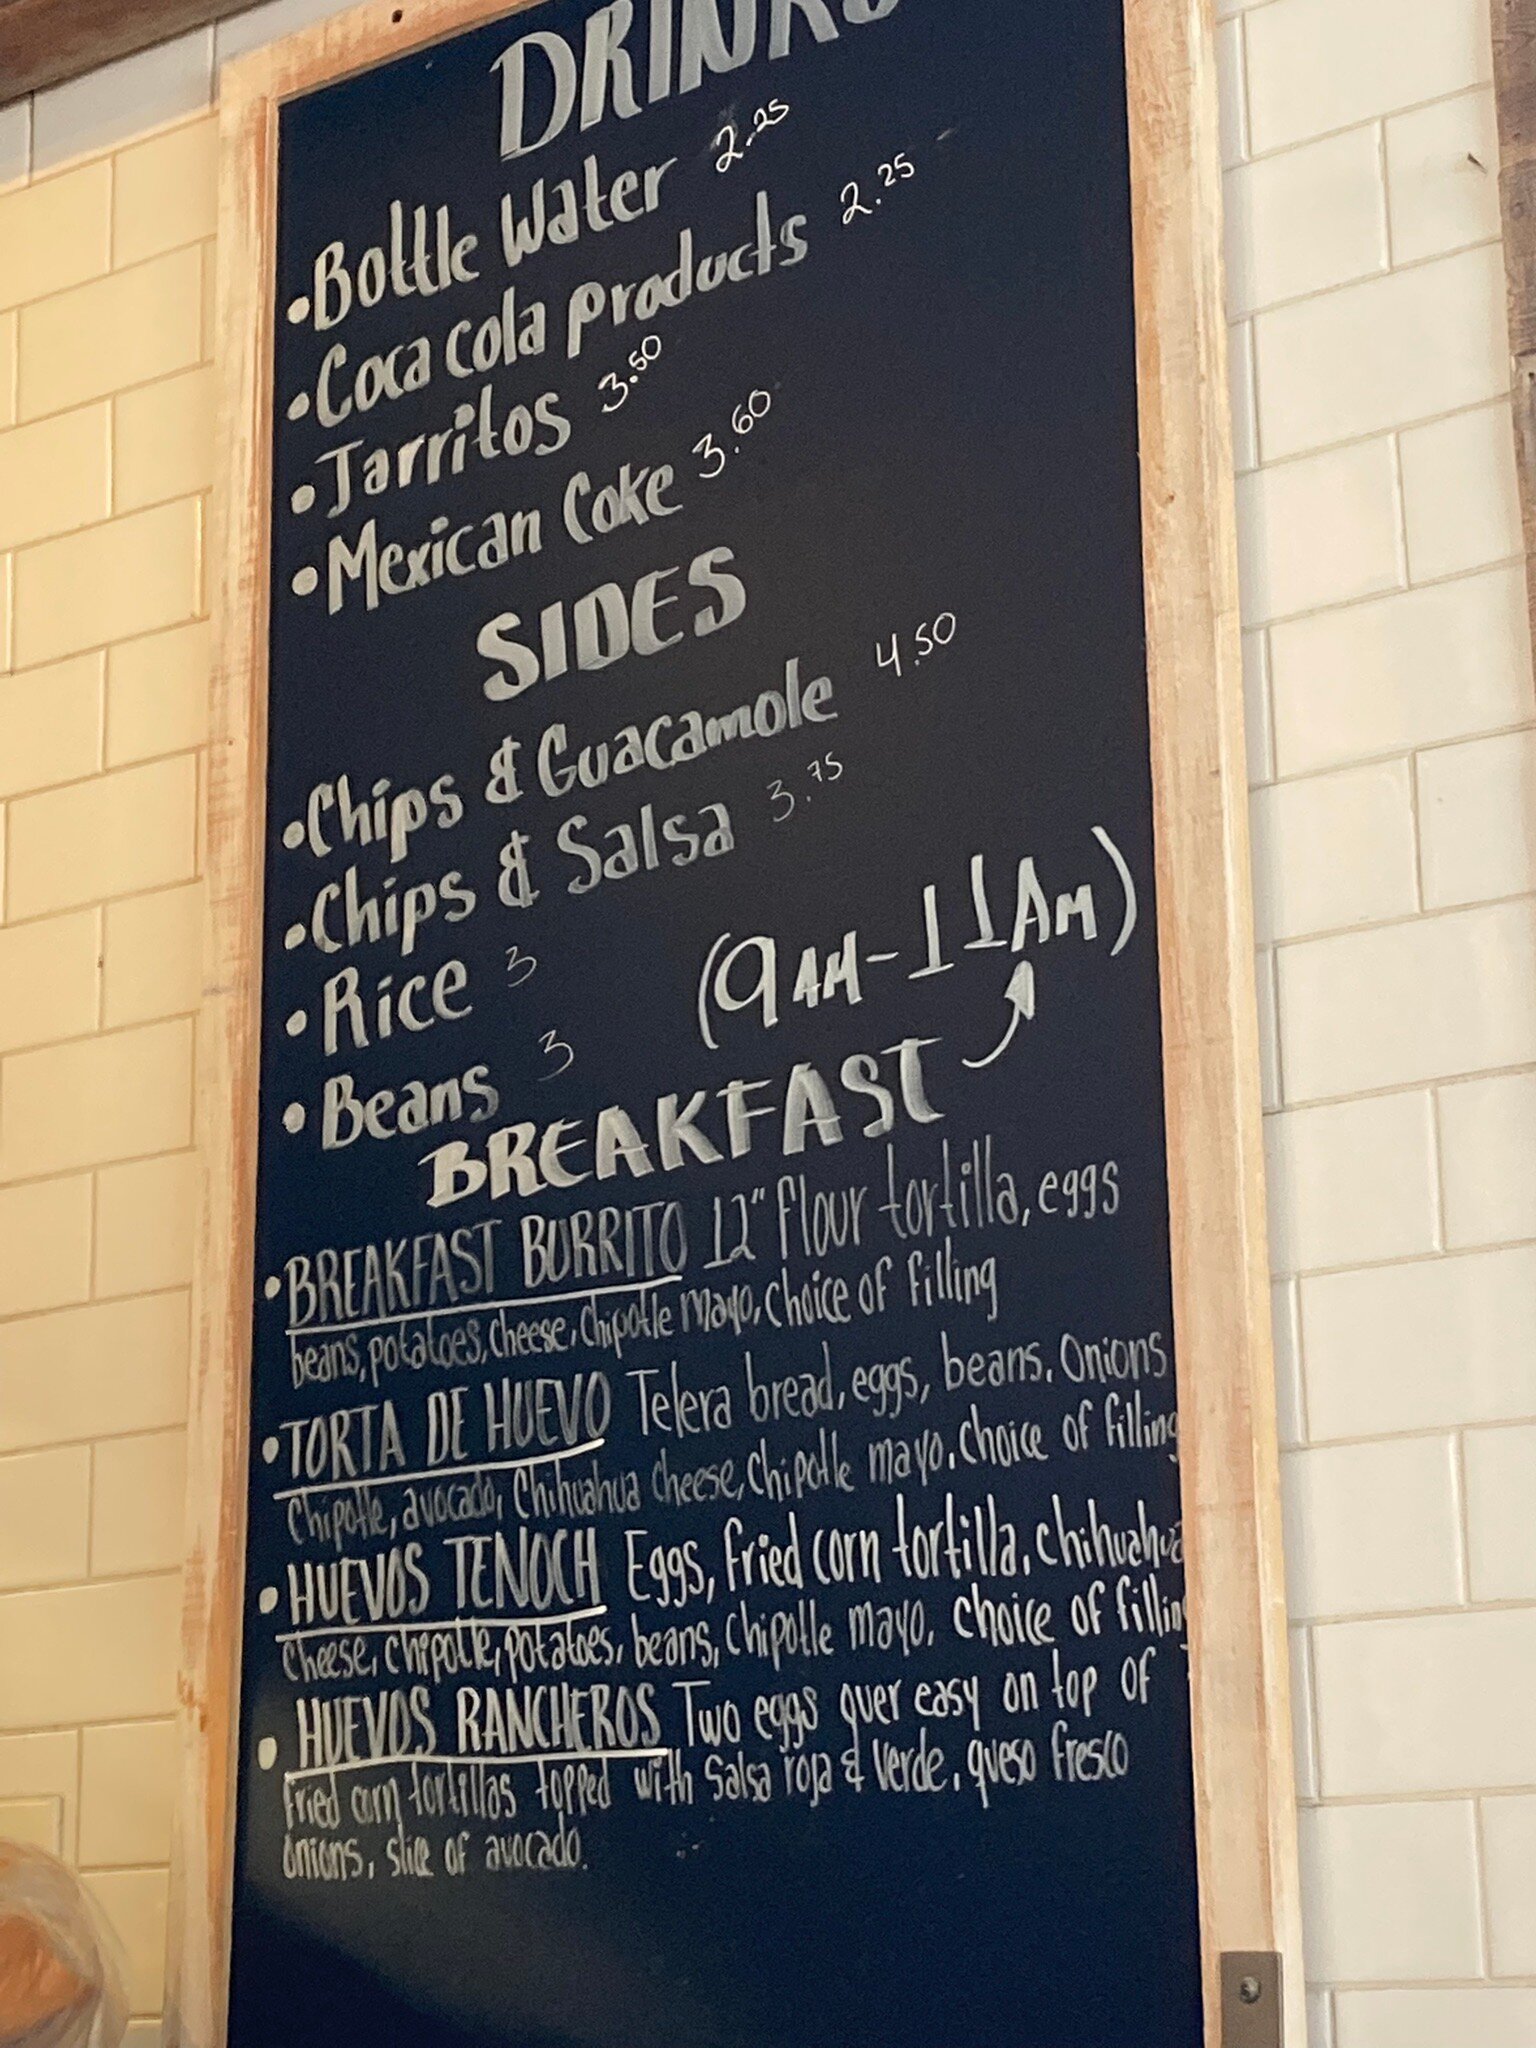 DRINKS
•Bottle Water 2.25
•Coca cola products 2.25
•Jarritos 3.50
•Mexican Coke 3.60
SIDES
•Chips & Guacamole 4.50
•Chips & Salsa 3.75
•Rice 3
•Beans 3
(9AM-11AM)
BREAKFAST
•BREAKFAST BURRITO 12" flour tortilla, eggs
beans, potatoes, cheese, Chipotle mayo, choice of filling
•TORTA DE HUEVO Telera bread, eggs, beans, onions
Chipotle, avocado, Chihuahua cheese, Chipotle mayo, choice of filling
•HUEVOS TENOCH Eggs, fried corn tortilla, chihuahua
cheese, chipotle, potatoes, beans, chipotle mayo, choice of filling
•HUEVOS RANCHEROS Two eggs over easy on top of
fried corn tortillas topped with salsa roja & verde, queso fresco
onions, slice of avocado.